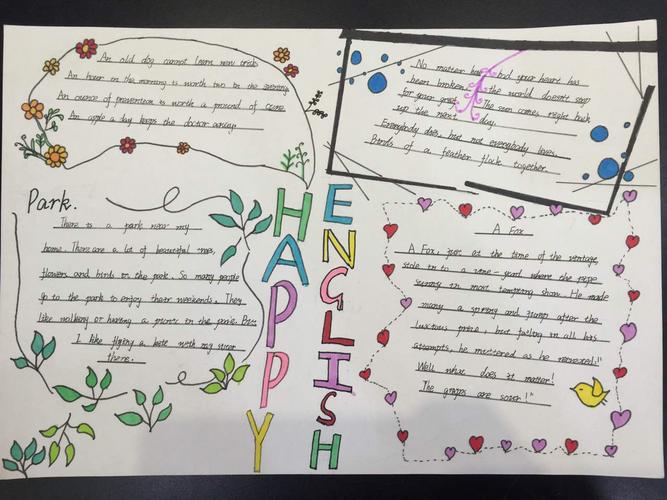 An old dog cannot learn new trick
An hour in the morning is worth two in the evening
An ounce of prevention is worth a pound of cure
An apple a day keeps the doctor away
No matter how bad your heart has
been broken, the world doesn't stop
for your grief. The sun comes right back
up the next day.
Everybody dies, but not everybody lives.
Birds of a feather flock together.
Park.
There is a park near my
home. There are a lot of beautiful trees,
flowers and birds in the park. So many people
go to the park to enjoy their weekends. They
like walking or having a picnic in the park. But
I like flying a kite with my
there.
HAPPY
ENGLISH
A Fox
A Fox, just at the time of the vintage,
stole in to a vine-yard where the ripe
sunny in most tempting show. He made
many a spring and jump after the
luscious prize; but failing in all his
attempts, he muttered as he retreated:"
Well what does it matter!
The grapes are sour!"